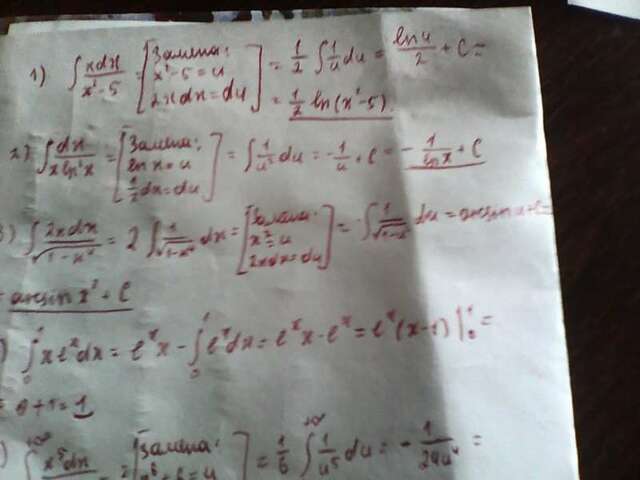 1) ∫ xdx / x²-5 = [Замена: x²-5=u 2xdx=du] = 1/2 ∫ 1/u du = ln u / 2 + C =
= 1/2 ln(x²-5).
2) ∫ dx / x ln²x = [Замена: ln x = u 1/x dx = du] = ∫ 1/u² du = -1/u + C = - 1/ln x + C
3) ∫ 2xdx / √1-x⁴ = 2 ∫ 1/√1-x⁴ dx = [Замена: x²=u 2xdx=du] = ∫ 1/√1-u² du = arcsin u + C =
= arcsin x² + C
) ∫₀¹ xeˣdx = eˣx - ∫₀¹ eˣdx = eˣx - eˣ = eˣ(x-1) |₀¹ =
= 0+1=1
) ∫ +∞ x⁵dx = [Замена: x⁶ = u] = 1/6 ∫ +∞ 1/u⁵ du = - 1/24u⁴ =